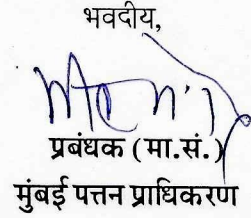 भवदीय,
प्रबंधक (मा.सं.)
मुंबई पत्तन प्राधिकरण